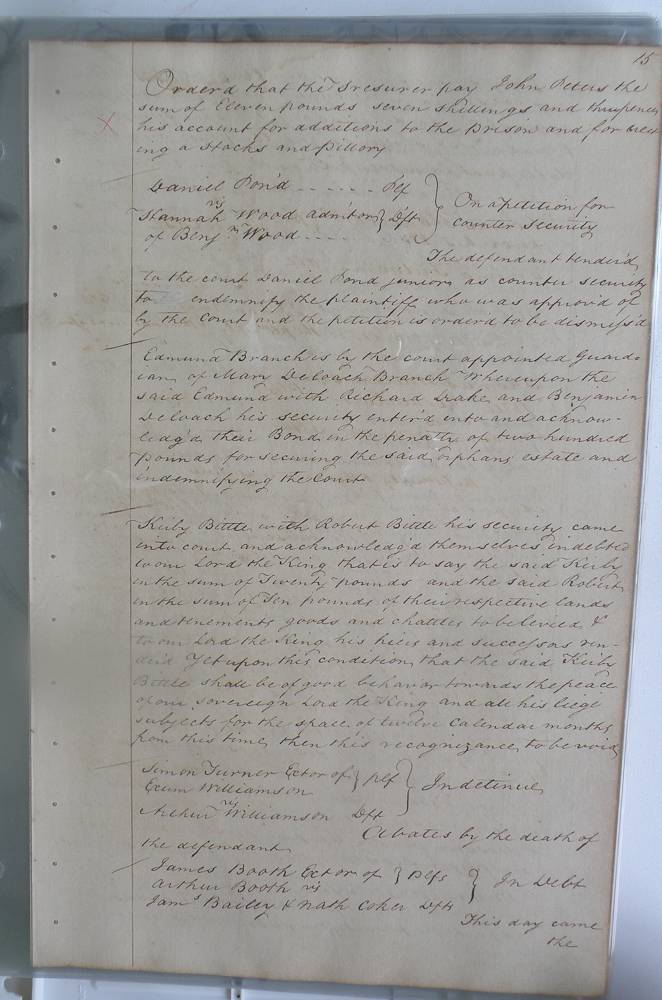 15
Order'd that the Tresurer pay John Peters the
sum of Eleven pounds seven shillings and three pence
his account for additions to the Prison and for erec
ing a Stocks and Pillory
X
Daniel Pon'd ------ Plf
vs
Hannah Wood Admitorx } Dft
of Benjm Wood ----
} On a petition for
counter security
The defendant tender'd
to the court Daniel Pond junior as counter security
to endemnify the plaintiff who was approv'd of
by the Court and the petition is order'd to be dismiss'd
Edmund Branch is by the court appointed Guard-
ian of Mary Deloach Branch Whereupon the
said Edmund with Richard Drake and Benjamin
Deloach his security enter'd into and acknow-
ledg'd their Bond in the penalty of two hundred
pounds for securing the said orphans estate and
indemnifying the Court
Kirby Bittle with Robert Bittle his security came
into court and acknowledg'd themselves indebted
to our Lord the King that is to say the said Kirby
in the sum of Twenty pounds and the said Robert
in the sum of Ten pounds of their respective lands
and tenements goods and chattles to be levied &
to our Lord the King his heirs and successors ren-
der'd Yet upon this condition that the said Kirby
Bittle shall be of good behavior towards the peace
of our sovereign Lord the King and all his liege
subjects for the space of twelve Calendar months
from this time then this recognizance to be void
Simon Turner Ector of } Plf
Exum Williamson
vs
Arthur Williamson Dft
} In detinue
Abates by the death of
the defendant
James Booth Ector of } Plfs
Arthur Booth vs
Jams Bailey & Nath Coker Dfts
} In Debt
This day came
the